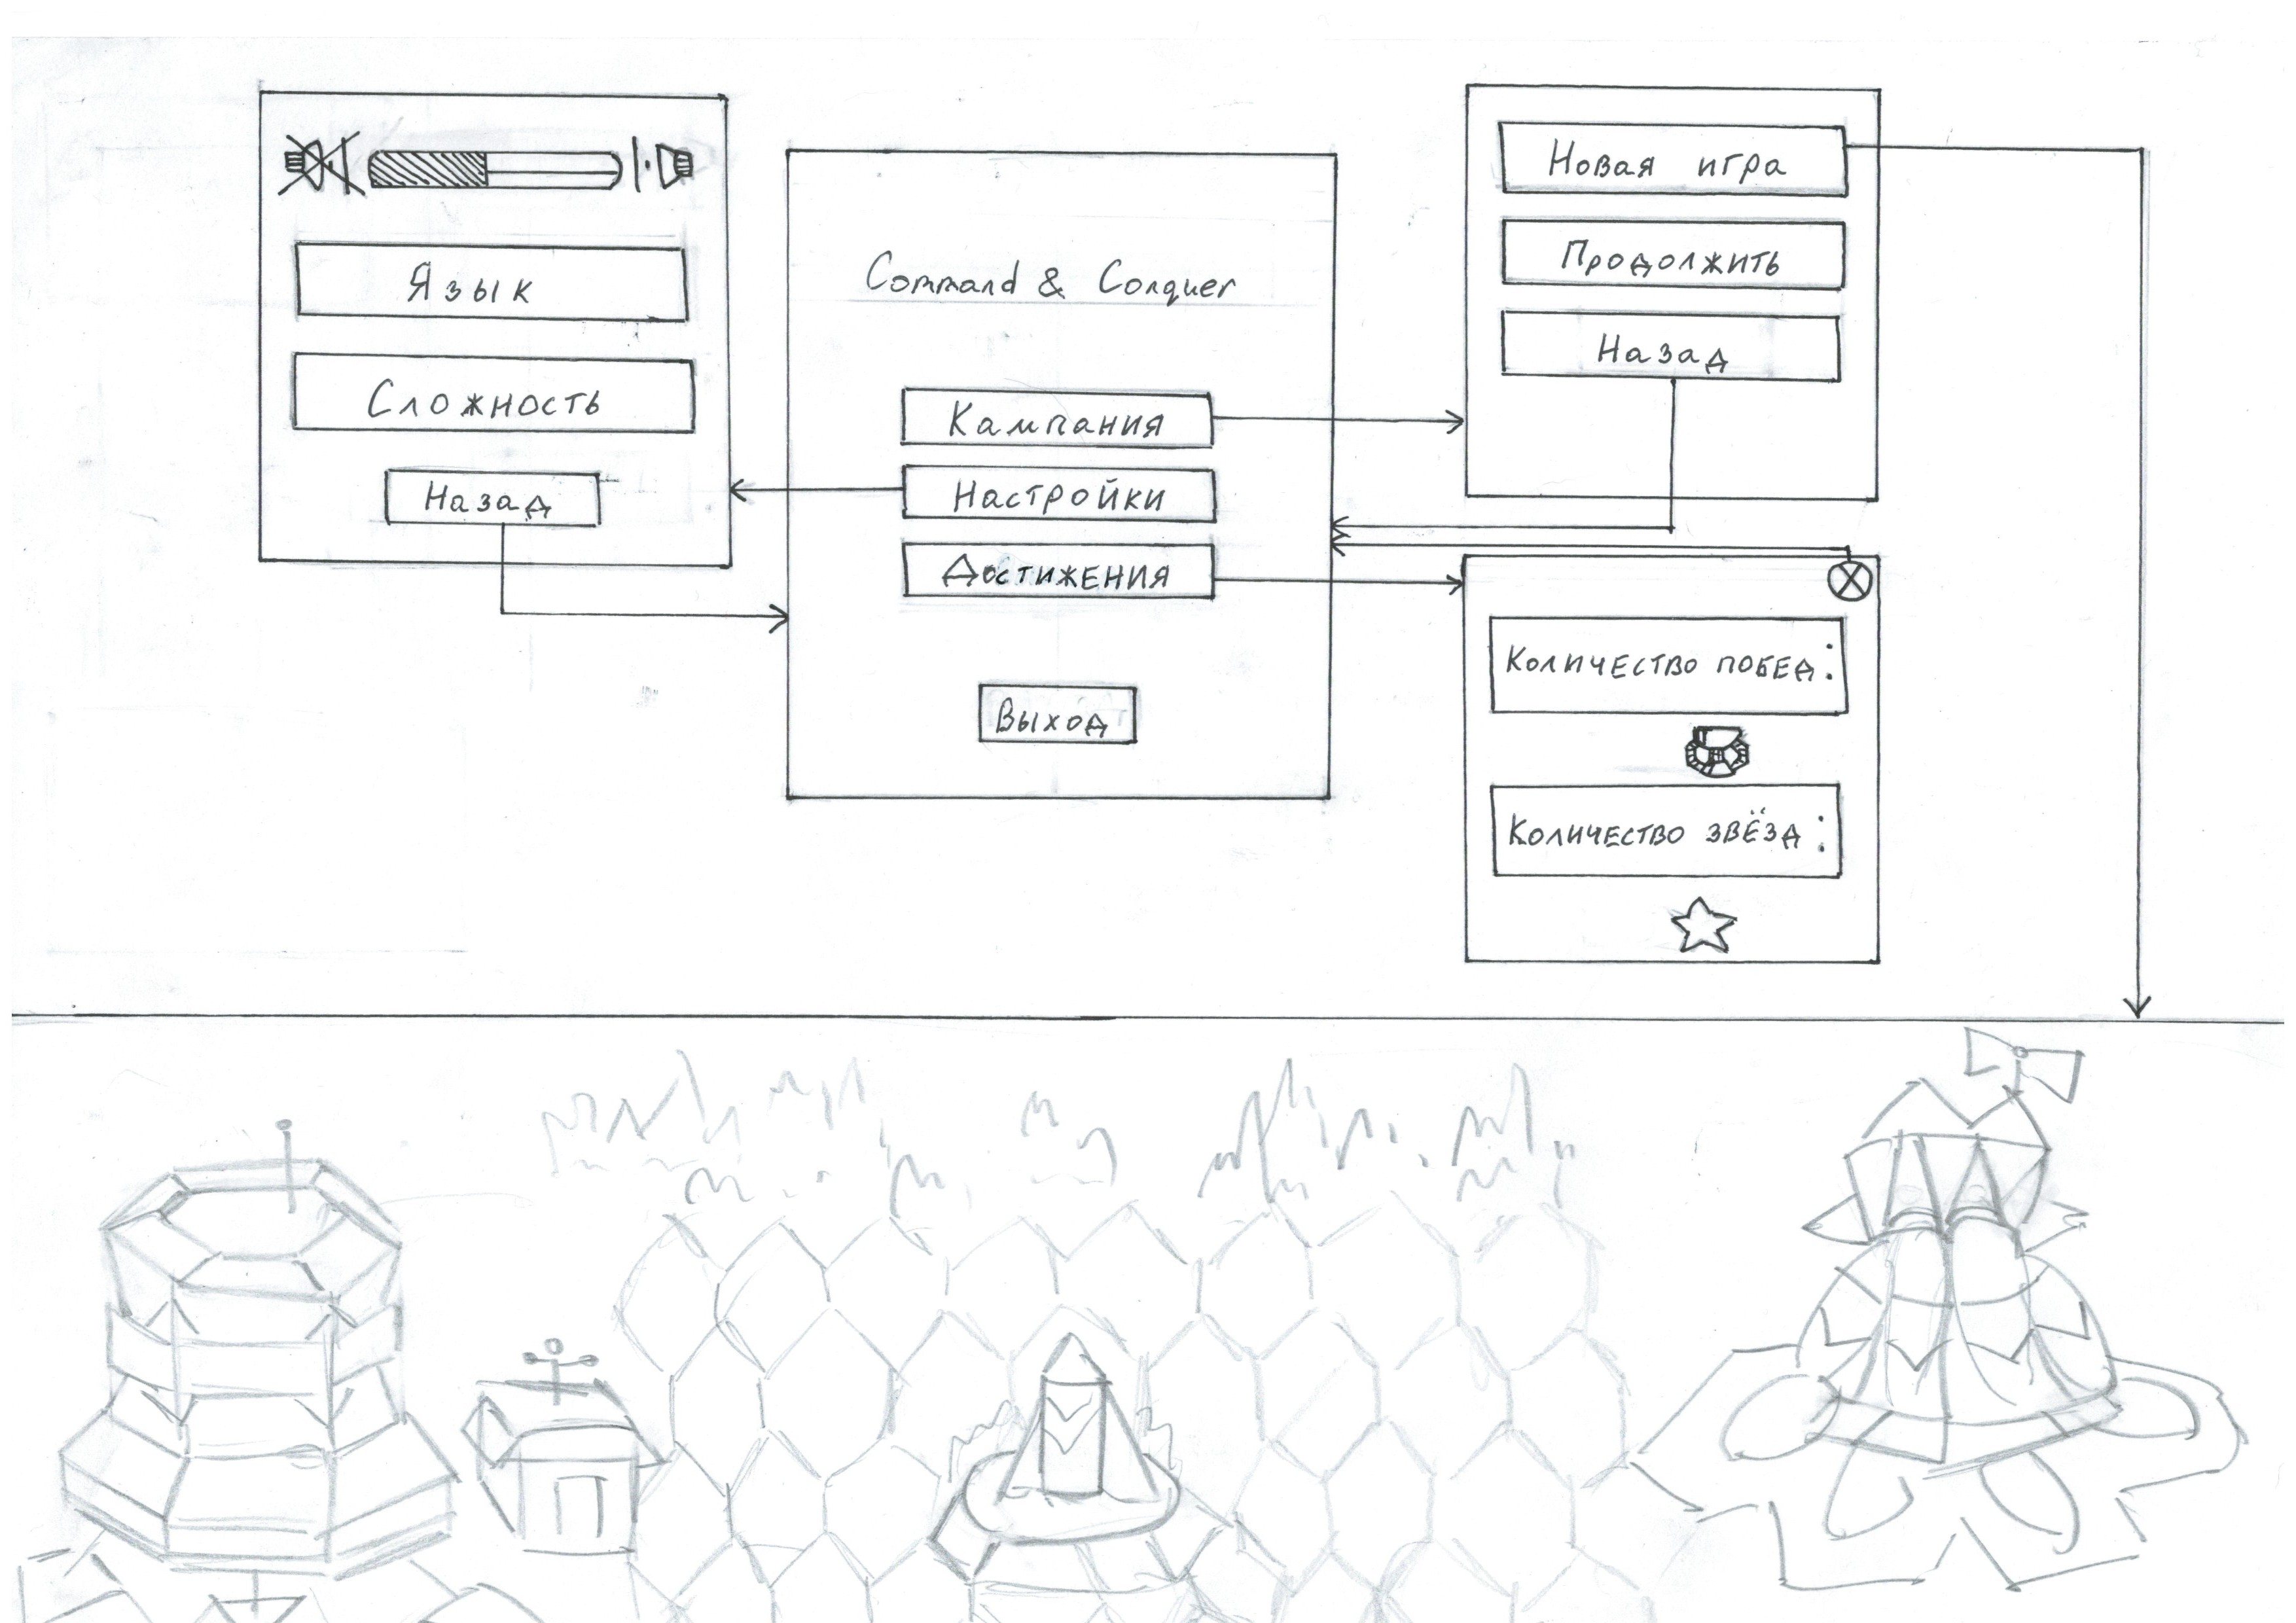 Язык
Сложность
Назад
Command & Conquer
Кампания
Настройки
Достижения
Выход
Новая игра
Продолжить
Назад
Количество побед:
Количество звёзд: